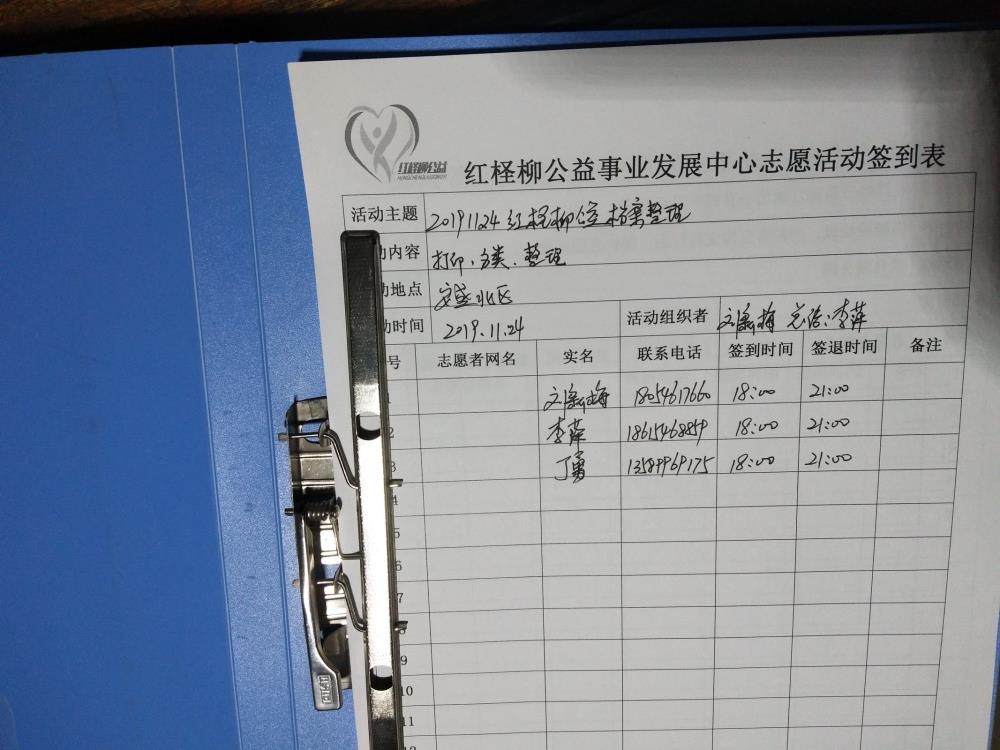 红柽柳公益
HONGCHENGLIUGONGYI
红柽柳公益事业发展中心志愿活动签到表
活动主题 20191124红柽柳公益档案整理
动内容 打印、分类、整理
动地点 安盛北区
动时间 2019.11.24 活动组织者 总结:李萍
号 志愿者网名 实名 联系电话 签到时间 签退时间 备注
1 18054617660 18:00 21:00
2 李萍 18615468859 18:00 21:00
3 丁勇 13589969175 18:00 21:00
4
5
6
7
8
9
10
11
12
PUSH